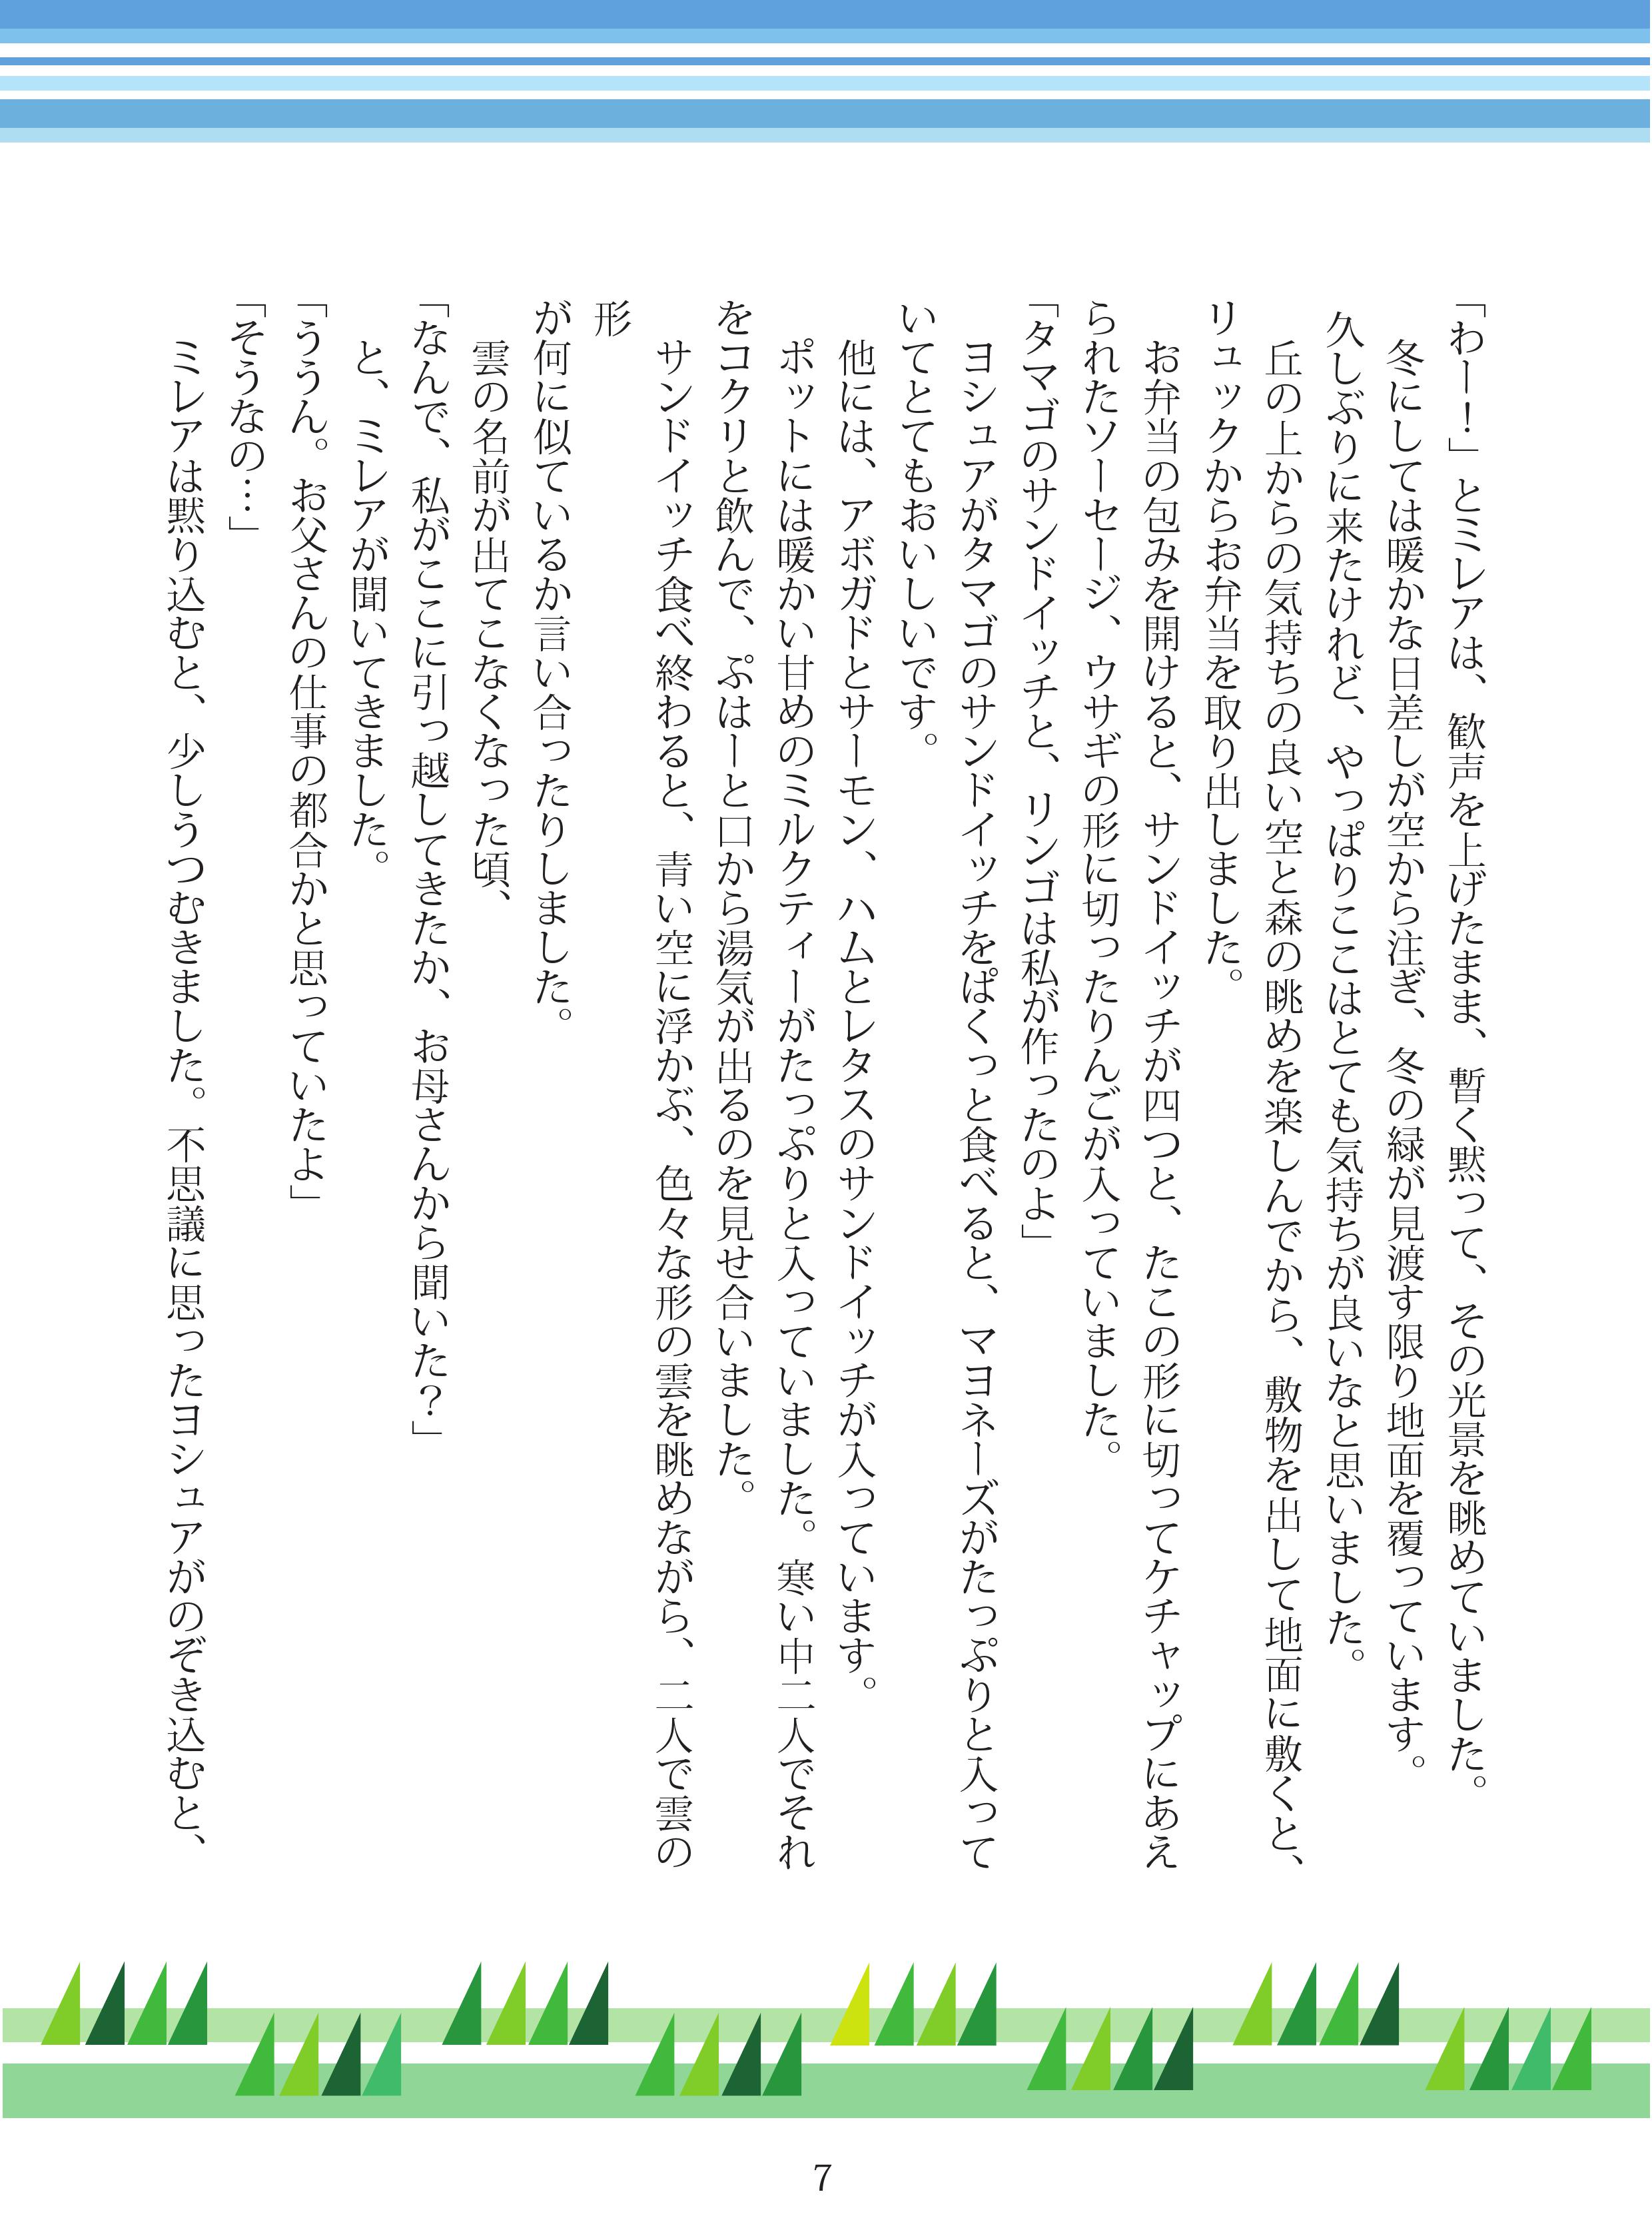 「わー！」とミレアは、歓声を上げたまま、暫く黙って、その光景を眺めていました。
　冬にしては暖かな日差しが空から注ぎ、冬の緑が見渡す限り地面を覆っています。
久しぶりに来たけれど、やっぱりここはとても気持ちが良いなと思いました。
　丘の上からの気持ちの良い空と森の眺めを楽しんでから、敷物を出して地面に敷くと、
リュックからお弁当を取り出しました。
　お弁当の包みを開けると、サンドイッチが四つと、たこの形に切ってケチャップにあえ
られたソーセージ、ウサギの形に切ったりんごが入っていました。
「タマゴのサンドイッチと、リンゴは私が作ったのよ」
　ヨシュアがタマゴのサンドイッチをぱくっと食べると、マヨネーズがたっぷりと入って
いてとてもおいしいです。
　他には、アボガドとサーモン、ハムとレタスのサンドイッチが入っています。
　ポットには暖かい甘めのミルクティーがたっぷりと入っていました。寒い中二人でそれ
をコクリと飲んで、ぷはーと口から湯気が出るのを見せ合いました。
　サンドイッチ食べ終わると、青い空に浮かぶ、色々な形の雲を眺めながら、二人で雲の
形
が何に似ているか言い合ったりしました。
　雲の名前が出てこなくなった頃、
「なんで、私がここに引っ越してきたか、お母さんから聞いた？」
　と、ミレアが聞いてきました。
「ううん。お父さんの仕事の都合かと思っていたよ」
「そうなの…」
　ミレアは黙り込むと、少しうつむきました。不思議に思ったヨシュアがのぞき込むと、
7